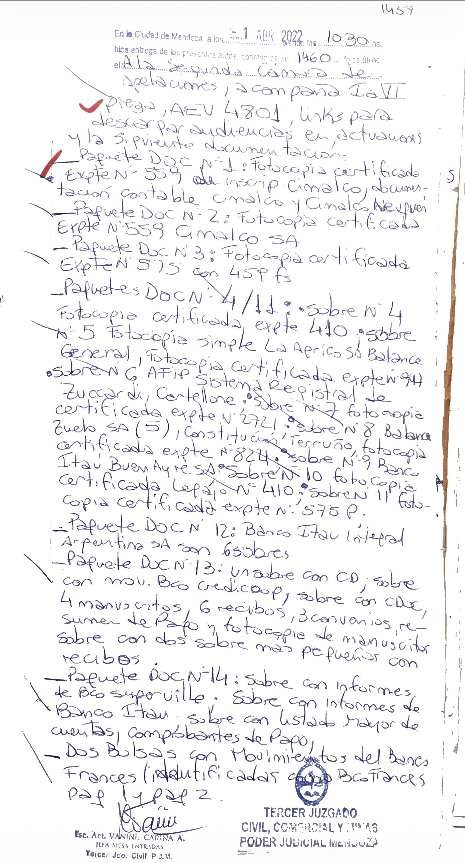 1459
En la Ciudad de Mendoza, a los 1 ABR 2022 siendo las 1030 hs.
hice entrega de los presentes autos, constantes de 1460 fojas útiles,
el a la Segunda Cámara de
Apelaciones, acompaña I a VI
pieza, AEV 4801, links para
descargar audiencias en actuaciones
y la siguiente documentación:
- Paquete DOC N° 1: Fotocopia certificada
Expte N° 559 de inscrip Cimalco, documen-
tación contable Cimalco y Cimalco Neuquén
- Paquete DOC N° 2: Fotocopia certificada
Expte N° 559 Cimalco SA
- Paquete Doc N° 3: Fotocopia certificada
Expte N° 575 con 459 fs
- Paquetes DOC N° 4/11: • Sobre N° 4
Fotocopia certificada, expte 410 • sobre
N° 5 Fotocopia simple La Agrícola SA Balance
General, Fotocopia certificada expte N° 947
• Sobre N° 6 AFIP Sistema Registral de
Zuccardi, Cartellone • Sobre N° 7 fotocopia
certificada expte N° 2721 • sobre N° 8 Balance
Zuelo SA (5), constitución Terruño, fotocopia
certificada expte N° 824 • sobre N° 9 Banco
Itaú Buen Ayre SA • Sobre N° 10 fotocopia
certificada Legajo N° 410 • sobre N 11 foto-
copia certificada expte N° 575 P.
- Paquete DOC N° 12: Banco Itaú Integral
Argentina SA son 6 sobres
- Paquete DOC N° 13: un sobre con CD, sobre
con mov. Bco Credicoop, sobre con
4 manuscritos, 6 recibos, 3 convenios, re-
sumen de Pago y fotocopia de manuscritos
sobre con dos sobre más pequeños con
recibos.
- Paquete DOC N° 14: Sobre con informes
de Bco Supervielle. Sobre con informes de
Banco Itaú, sobre con listado Mayor de
cuentas, comprobantes de Pago,
- Dos Bolsas con Movimientos del Banco
Frances (identificadas como Bco Frances
Paq 1 y paq 2.
Esc. Act. VANINE CARINA A.
JEFA MESA ENTRADAS
Tercer Juz. Civil P.J.M.
TERCER JUZGADO
CIVIL, COMERCIAL Y MINAS
PODER JUDICIAL MENDOZA